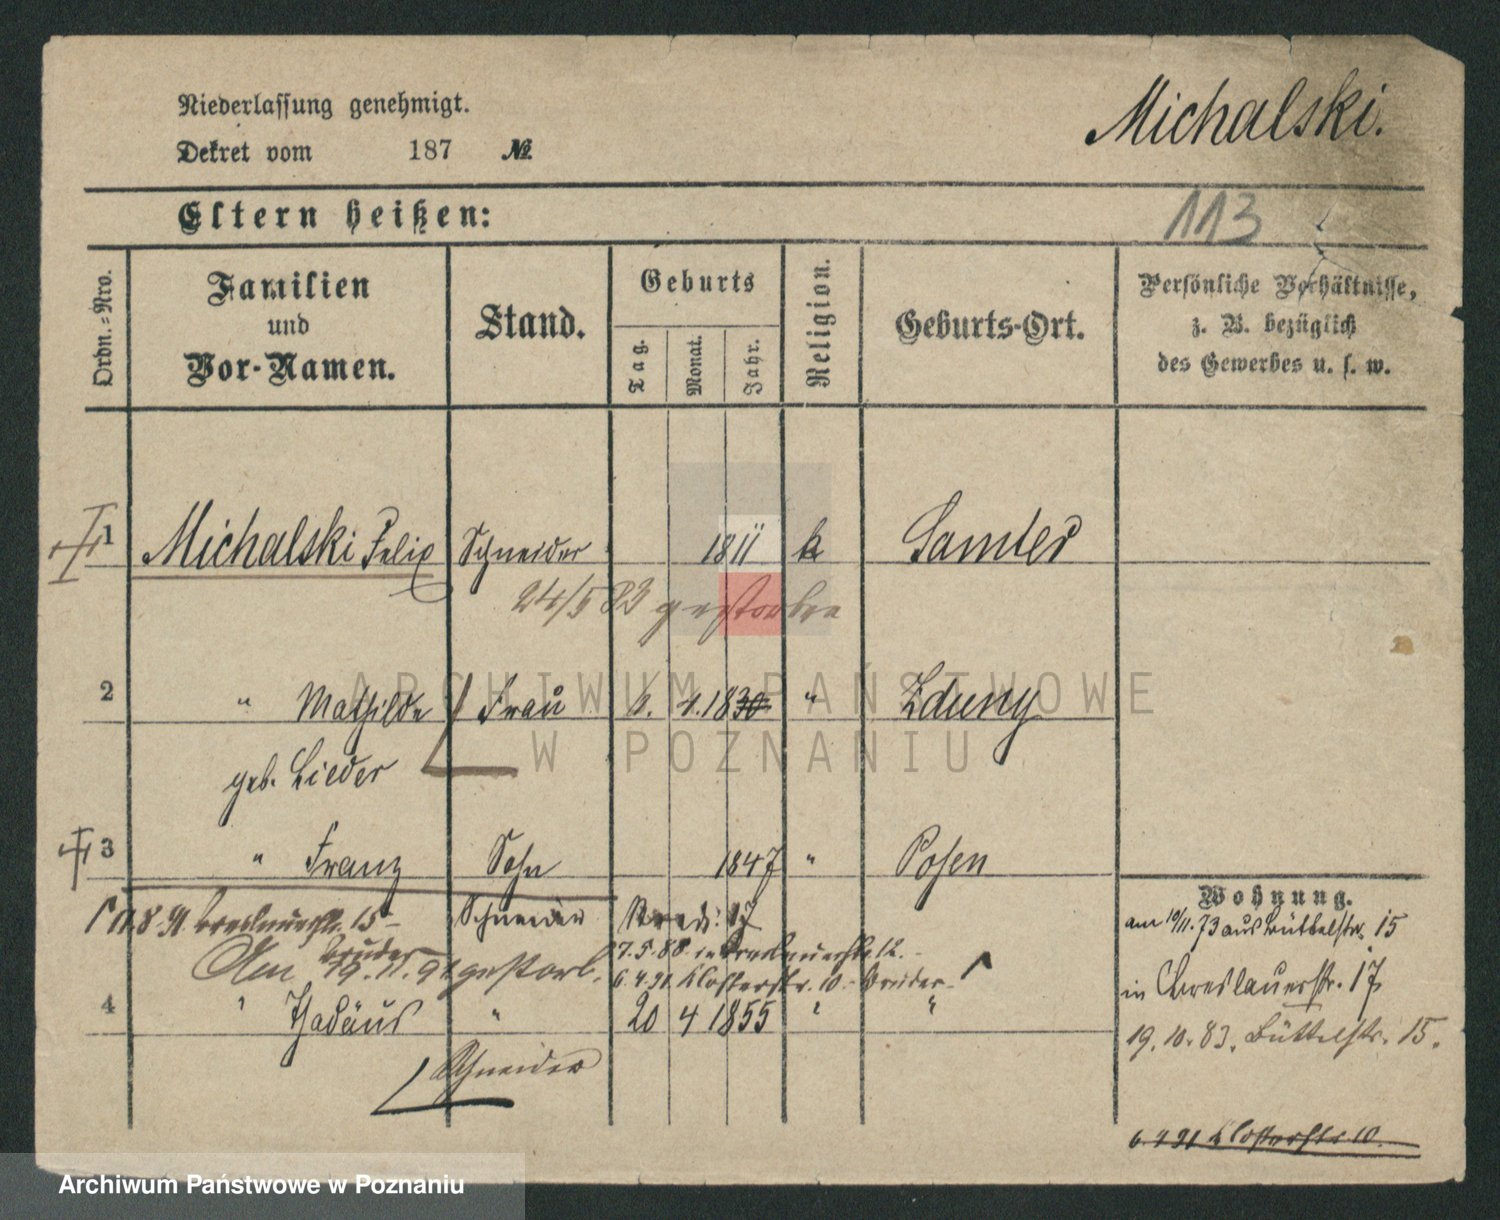 Niederlassung genehmigt.
Michalski.
Dekret vom 187 №
Eltern heißen:
113
Ordn.-Nro.
Familien
und
Vor-Namen.
Stand.
Geburts
Tag.
Monat.
Jahr.
Religion.
Geburts-Ort.
Persönliche Verhältnisse,
z. B. bezüglich
des Gewerbes u. s. w.
1 Michalski Felix Schneider 1811 k Samter
24/5 83 gestorben
2 " Mathilde Frau 1830 " Zduny
geb. Lieder
3 " Franz Sohn 1847 " Posen
Schneider
Wohnung.
am 10/11.73 aus Büttelstr. 15
in Breslauerstr. 17
19.10.83. Büttelstr. 15.
6 4 91 Klosterstr 10
17.5.88 in Breslauerstr 12.
6.4.91. Klosterstr. 10. Bruder
Am 19.11.91 gestorb.
Bruder
4 " Thadäus " 20 4 1855 " "
Schneider
ARCHIWUM PAŃSTWOWE
W POZNANIU
Archiwum Państwowe w Poznaniu